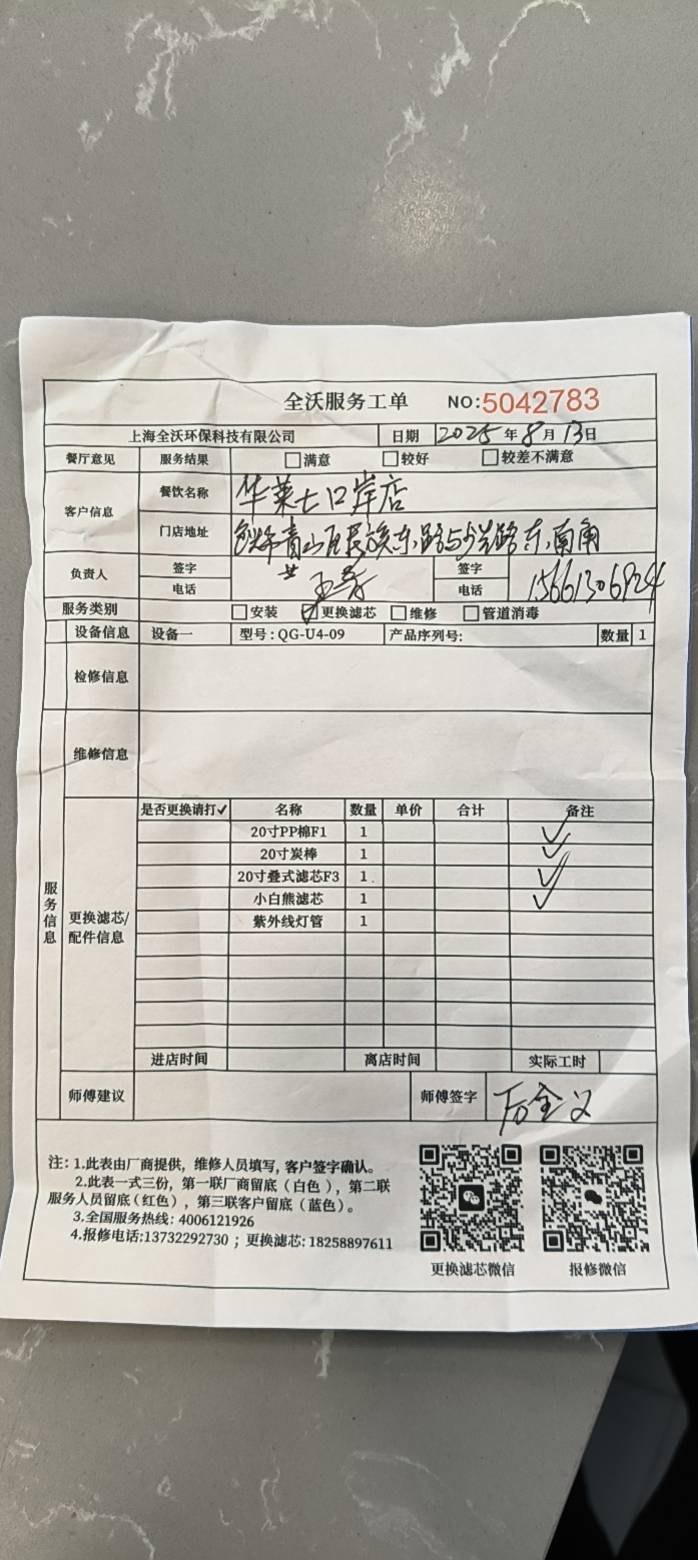 全沃服务工单 NO:5042783
上海全沃环保科技有限公司 日期 2025年8月13日
餐厅意见 服务结果 满意 较好 较差不满意
客户信息 餐饮名称 华莱士口岸店
门店地址 青山区民族东路与 路东南角
负责人 签字 签字
电话 电话 15661306924
服务类别 安装 更换滤芯 维修 管道消毒
设备信息 设备一 型号:QG-U4-09 产品序列号: 数量 1
检修信息
维修信息
服务信息
更换滤芯/
配件信息
是否更换请打✓ 名称 数量 单价 合计 备注
20寸PP棉F1 1 ✓
20寸炭棒 1 ✓
20寸叠式滤芯F3 1 ✓
小白熊滤芯 1 ✓
紫外线灯管 1
进店时间 离店时间 实际工时
师傅建议 师傅签字
注:1.此表由厂商提供,维修人员填写,客户签字确认。
2.此表一式三份,第一联厂商留底(白色),第二联
服务人员留底(红色),第三联客户留底(蓝色)。
3.全国服务热线:4006121926
4.报修电话:13732292730;更换滤芯:18258897611
更换滤芯微信 报修微信